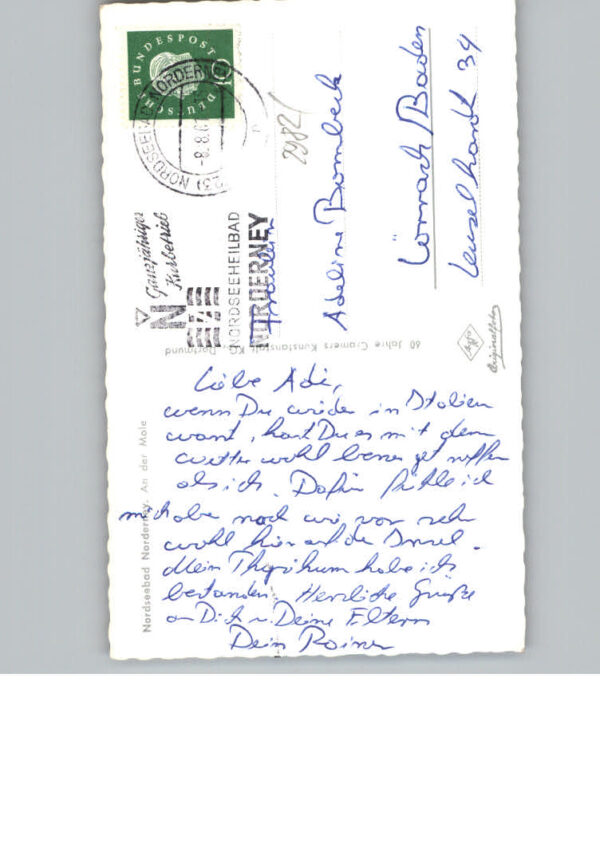 Liebe Adi,
wenn Du wieder in Italien
warst, hast Du es mit dem
Wetter wohl besser getroffen
als ich. Dafür fühle ich
mich aber nach wie vor sehr
wohl hier auf der Insel.
Mein Physikum habe ich
bestanden. Herzliche Grüße
an Dich u. Deine Eltern
Dein Rainer
Fräulein
Adeline Bombeck
Lörrach/Baden
34
2982/
DEUTSCHE BUNDESPOST
10
NORDSEEBAD NORDERNEY
-8.8.6
Ganzjähriger
Kurbetrieb
N
NORDSEEHEILBAD
NORDERNEY
60 Jahre Cramers Kunstanstalt KG, Dortmund
Agfa
Originalfoto
Nordseebad Norderney. An der Mole